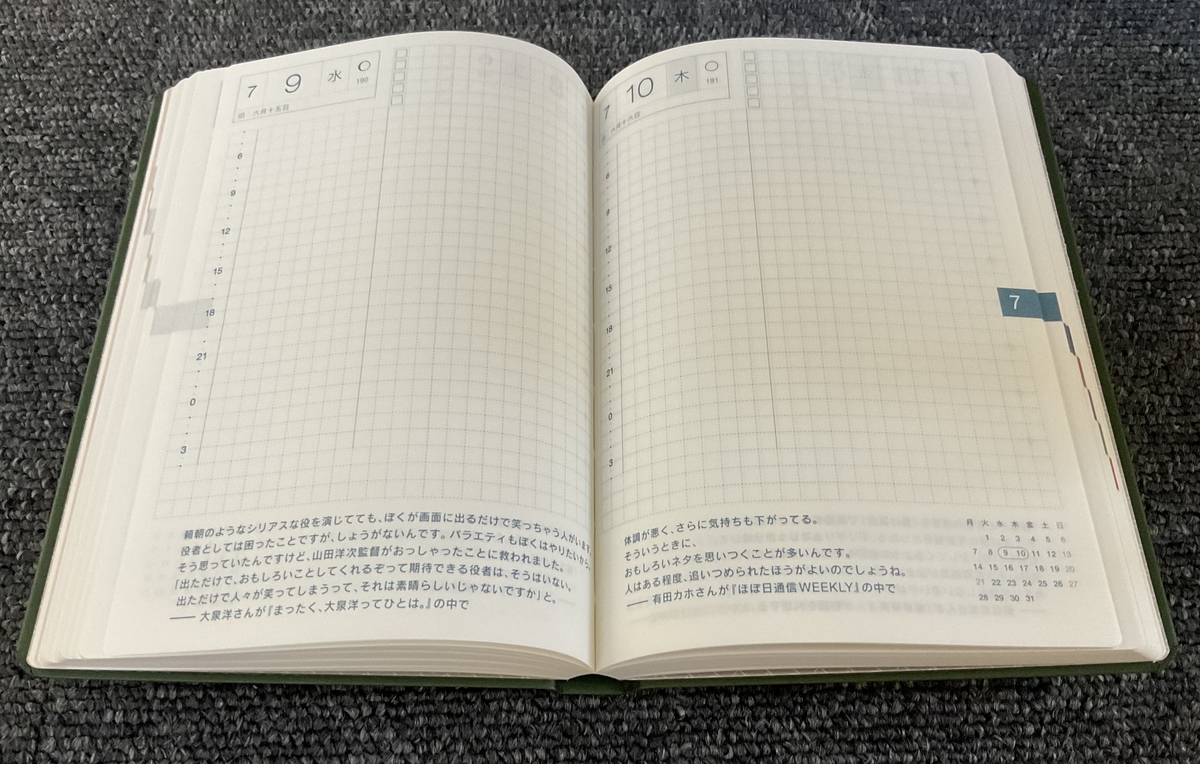 7 9 水
190
六月十五日
6
9
12
15
18
21
0
3
頼朝のようなシリアスな役を演じてても、ぼくが画面に出るだけで笑っちゃう人がいます。
役者としては困ったことですが、しょうがないんです。バラエティもぼくはやりたいから。
そう思っていたんですけど、山田洋次監督がおっしゃったことに救われました。
「出ただけで、おもしろいことしてくれるぞって期待できる役者は、そうはいない。
出ただけで人々が笑ってしまうって、それは素晴らしいじゃないですか」と。
―― 大泉洋さんが『まったく、大泉洋ってひとは。』の中で
7 10 木
191
六月十六日
6
9
12
15
18
21
0
3
7
体調が悪く、さらに気持ちも下がってる。
そういうときに、
おもしろいネタを思いつくことが多いんです。
人はある程度、追いつめられたほうがよいのでしょうね。
―― 有田カホさんが『ほぼ日通信WEEKLY』の中で
月 火 水 木 金 土 日
1 2 3 4 5 6
7 8 9 10 11 12 13
14 15 16 17 18 19 20
21 22 23 24 25 26 27
28 29 30 31